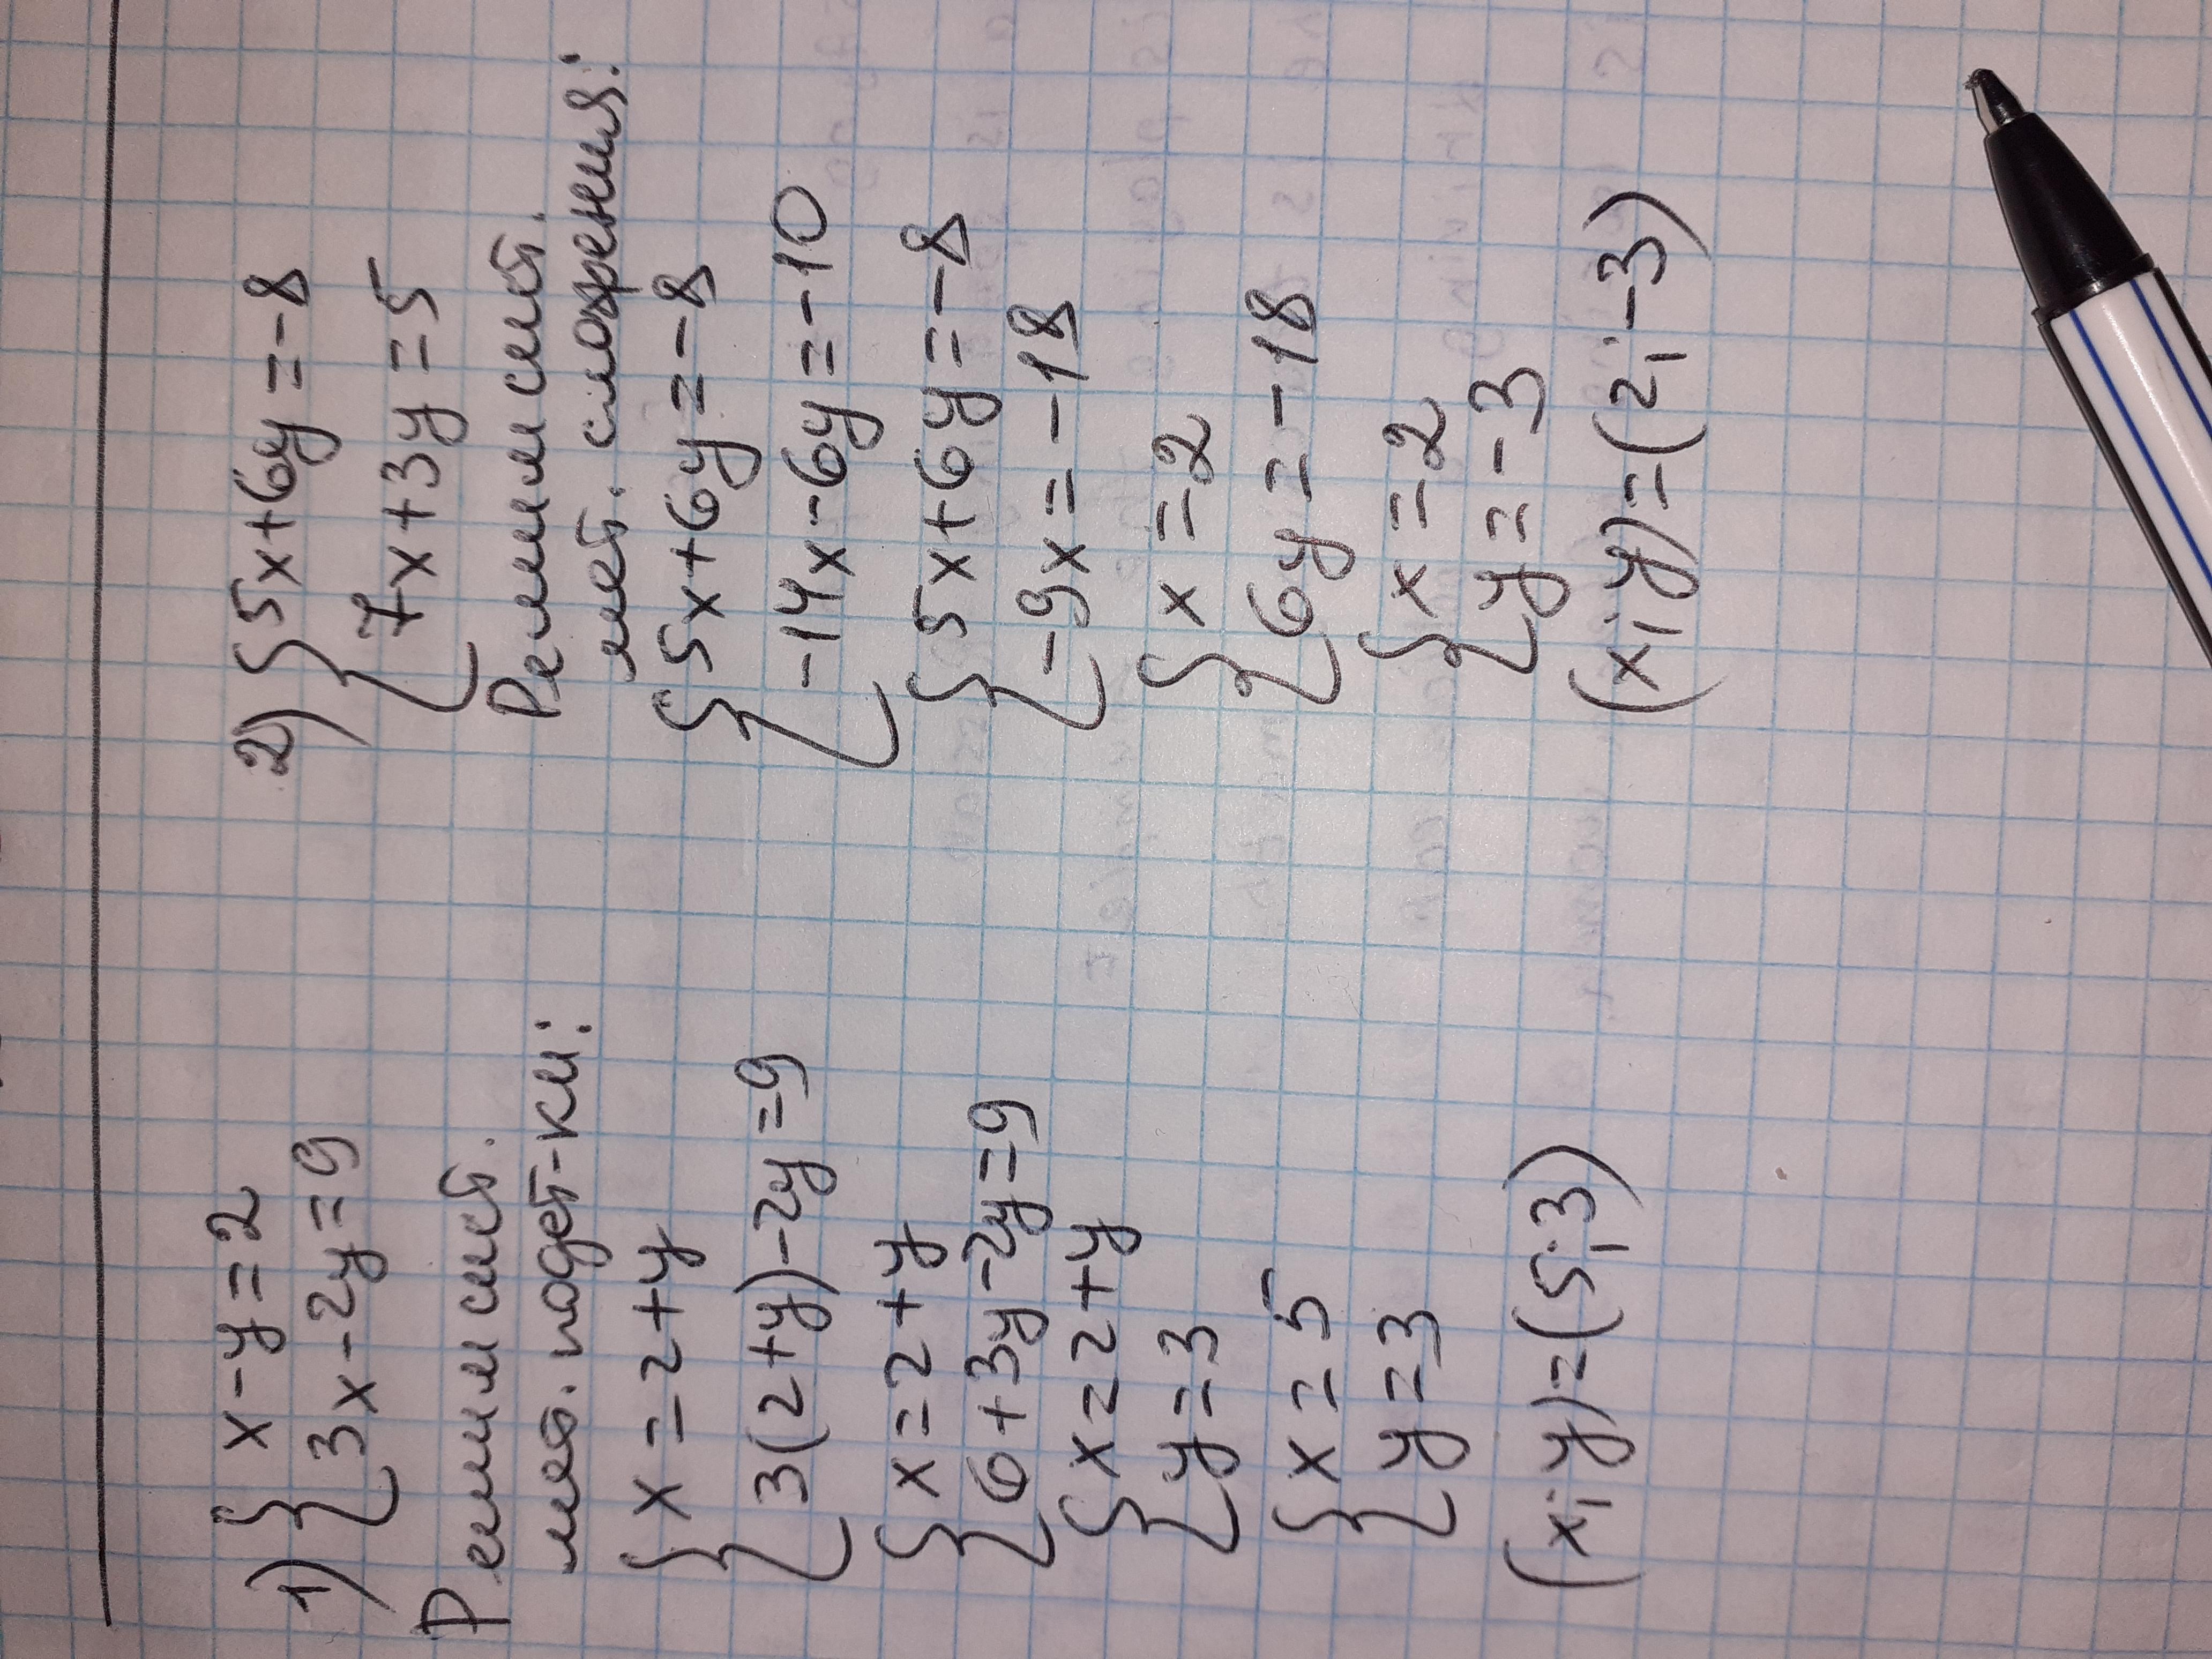 1) { x-y=2
3x-2y=9
Решим сист.
мет. подст-ки:
{ x=2+y
3(2+y)-2y=9
{ x=2+y
6+3y-2y=9
{ x=2+y
y=3
{ x=5
y=3
(x;y)=(5;3)
2) { 5x+6y=-8
7x+3y=5
Решим сист.
мет. сложения:
{ 5x+6y=-8
-14x-6y=-10
{ 5x+6y=-8
-9x=-18
{ x=2
6y=-18
{ x=2
y=-3
(x;y)=(2;-3)